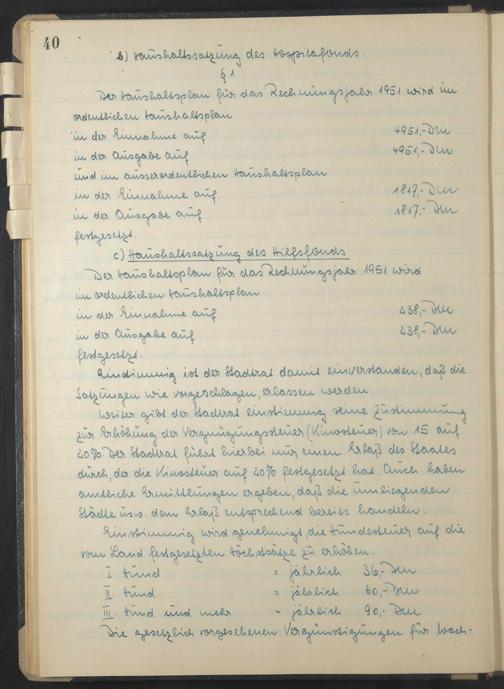 40
b) Haushaltssatzung des Hospitalfonds.
§ 1
Der Haushaltsplan für das Rechnungsjahr 1951 wird im
ordentlichen Haushaltsplan
in der Einnahme auf 4951,- DM
in der Ausgabe auf 4951,- DM
und im ausserordentlichen Haushaltsplan
in der Einnahme auf 1817,- DM
in der Ausgabe auf 1817,- DM
festgesetzt.
c) Haushaltssatzung des Hilfsfonds
Der Haushaltsplan für das Rechnungsjahr 1951 wird
im ordentlichen Haushaltsplan
in der Einnahme auf 238,- DM
in der Ausgabe auf 238,- DM
festgesetzt.
Einstimmig ist der Stadtrat damit einverstanden, daß die
Satzungen wie vorgeschlagen, erlassen werden.
Weiter gibt der Stadtrat einstimmig seine Zustimmung
zur Erhöhung der Vergnügungssteuer (Kinosteuer) von 15 auf
20%. Der Stadtrat führt hierbei nur einen Erlaß des Staates
durch, der die Kinosteuer auf 20% festgesetzt hat. Auch haben
amtliche Ermittlungen ergeben, daß die umliegenden
Städte usw. dem Erlaß entsprechend bereits handeln.
Einstimmig wird genehmigt, die Hundesteuer auf die
vom Land festgesetzten Höchstsätze zu erhöhen.
I. Hund = jährlich 36,- DM
II. Hund = jährlich 60,- DM
III. Hund und mehr = jährlich 90,- DM
Die gesetzlich vorgesehenen Vergünstigungen für Wach-